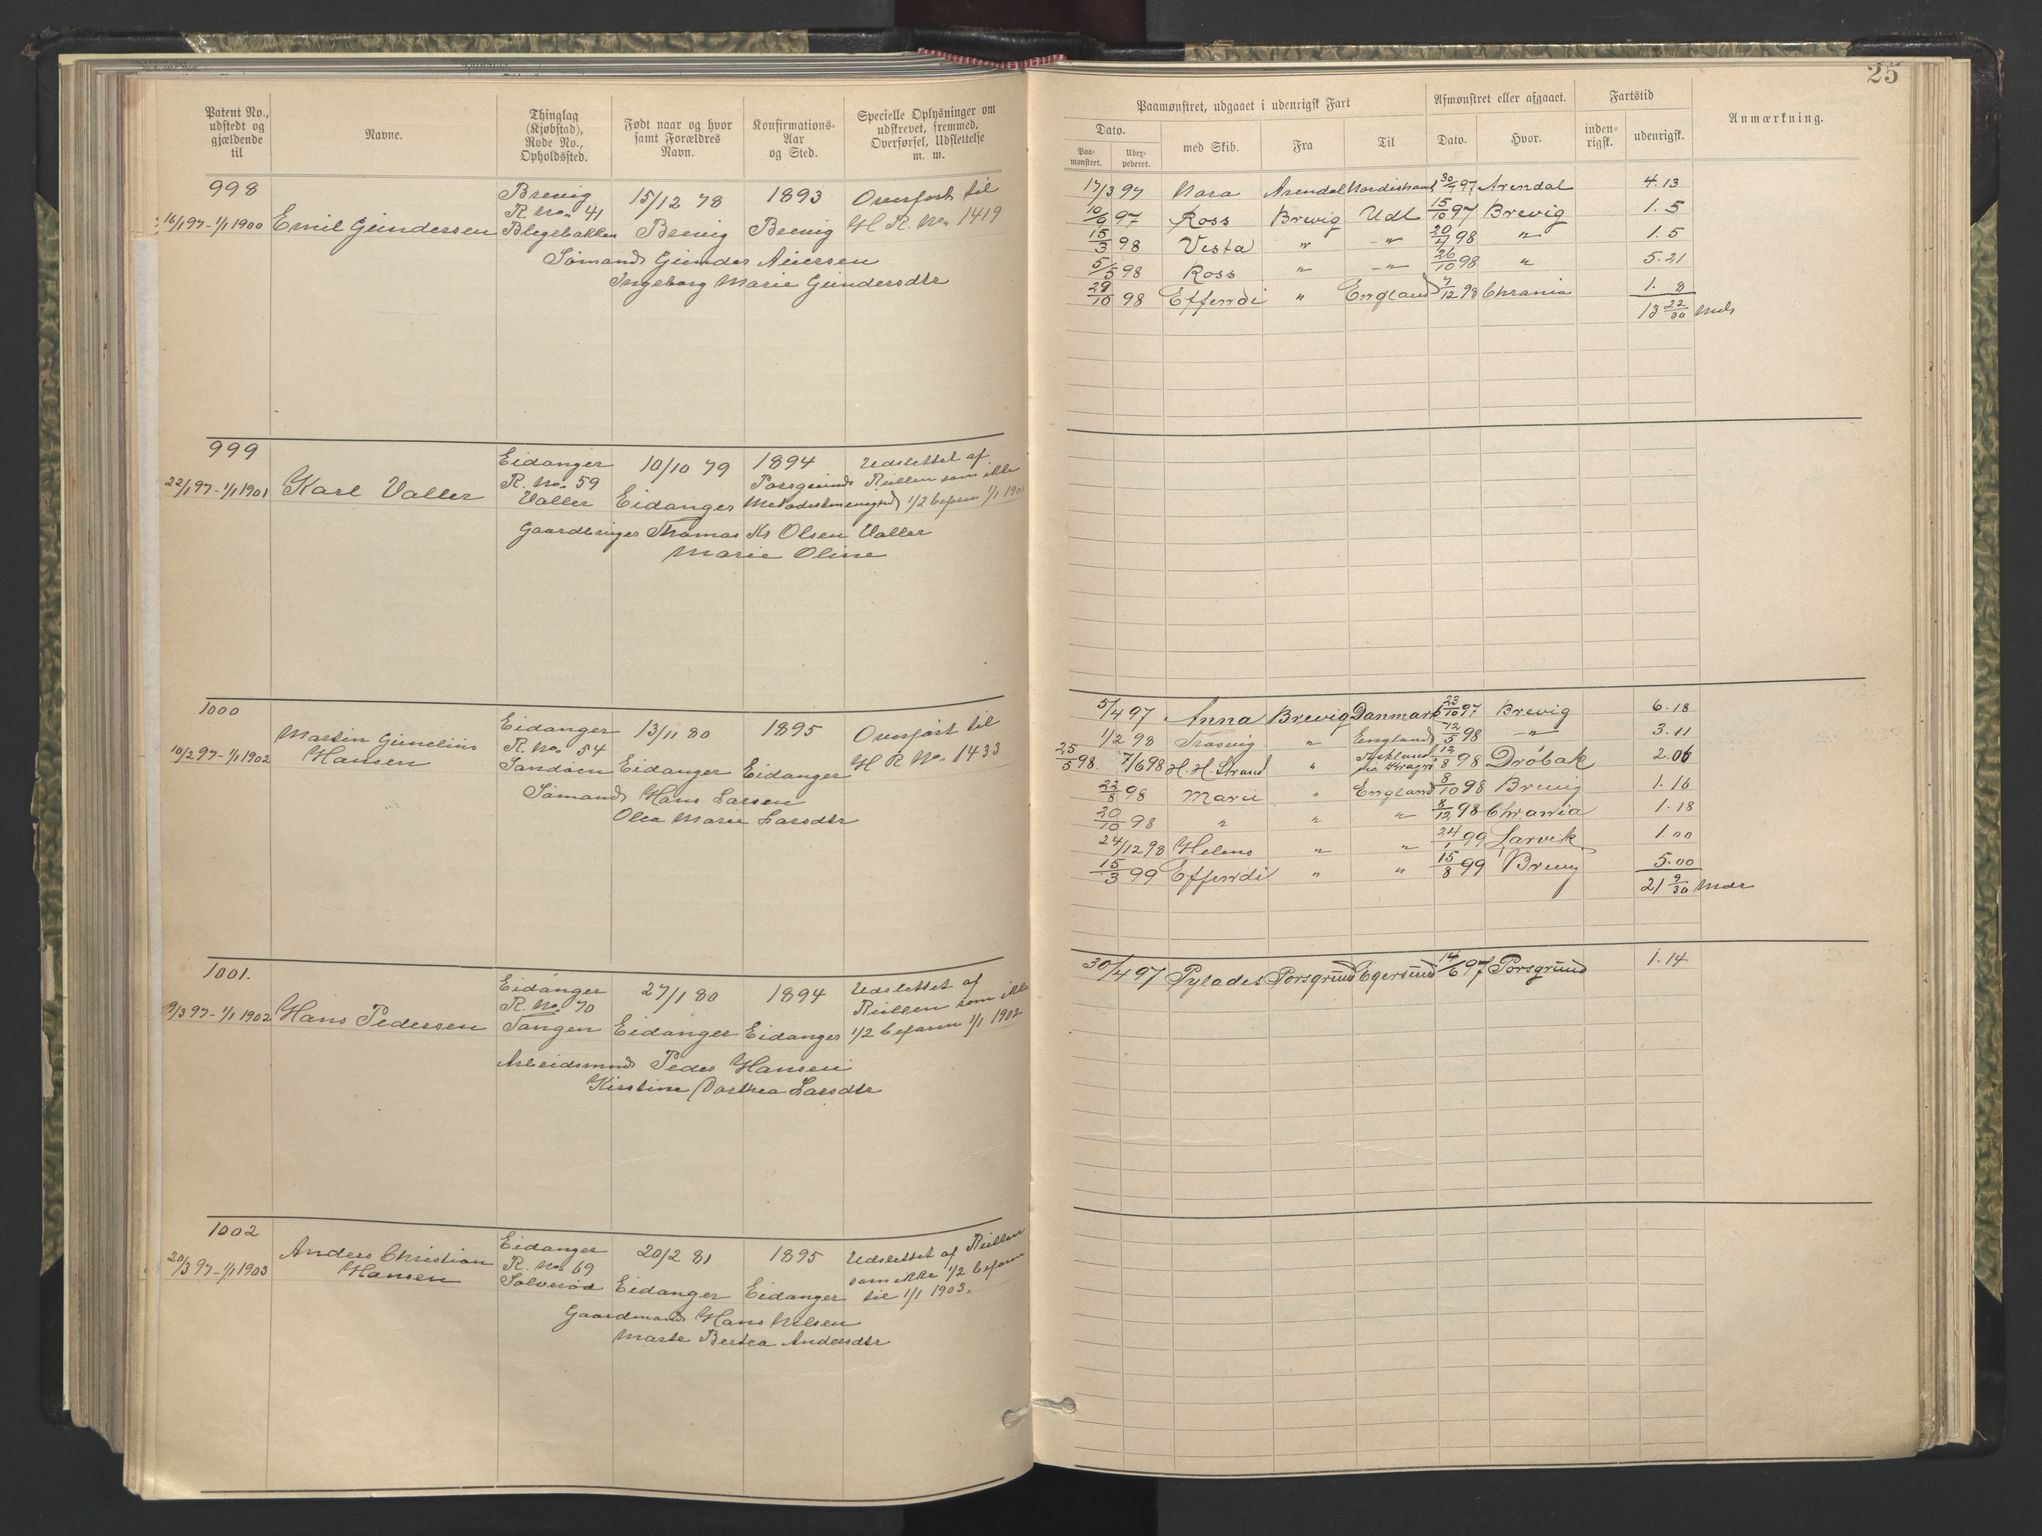 25
Patent No., udstedt og gjældende til
Navne.
Thinglag (Kjøbstad), Rode No., Opholdssted.
Født naar og hvor samt Forældres Navn.
Konfirmations-Aar og Sted.
Specielle Oplysninger om udskrevet, fremmed, Overførsel, Udslettelse m. m.
Paamønstret, udgaaet i udenrigsk Fart
Afmønstret eller afgaaet.
Fartstid
Anmærkning.
Dato.
Paa-mønstret.
Udex-pederet.
med Skib.
Fra
Til
Dato.
Hvor.
inden-rigsk.
udenrigsk.
998
16/1 97-1/1 1900 Emil Gundersen
Brevig R. No. 41 Blegebakken
15/12 78 Brevig
1893 Brevig
Overført til H R. No. 1419
Sømand Gunder Aversen
Ingeborg Marie Gundersdtr
17/3 97 Nora Arendal 30/7 97 Arendal 4.13
10/9 97 Ross Brevig Udl 15/10 97 Brevig 1. 5
15/3 98 Vesta " -"- 20/4 98 " 1. 5
5/5 98 Ross " -"- 26/10 98 " 5.21
29/10 98 Effendi " England 7/12 98 Chrania 1. 8
13 22/30 Mdr
999
22/1 97-1/1 1901 Karl Valler
Eidanger R. No. 59 Valler
10/10 79 Eidanger
1894 Porsgrund Metodistmenighed
Udslettet af Rullen som ikke 1/2 befaren 1/1 1901
Gaardbruger Thomas Kr Olsen Valler
Marie Oline
1000
10/2 97-1/1 1902 Martin Gunelius Hansen
Eidanger R. No. 54 Sandøen
13/11 80 Eidanger
1895 Eidanger
Overført til H R No. 1433
Sømand Hans Larsen
Olea Marie Larsdtr
5/4 97 Anna Brevig Danmark 23/10 97 Brevig 6.18
1/2 98 Frasvig " England 12/5 98 -"- 3.11
25/5 98 7/6 98 H. H. Strand " Tyskland via Kragerø 12/8 98 Drøbak 2.06
22/8 98 Marie " England 8/10 98 Brevig 1.16
20/10 98 " " " 8/12 98 Chrania 1.18
24/12 98 Helens " " 24/1 99 Larvik 1.00
15/3 99 Effendi " " 15/8 99 Brevig 5.00
21 9/30 Mdr
1001.
9/3 97-1/1 1902 Hans Pedersen
Eidanger R. No. 70 Tangen
27/1 80 Eidanger
1894 Eidanger
Udslettet af Rullen som ikke 1/2 befaren 1/1 1902
Arbeidsmand Peder Hansen
Kirstine Dorthea Larsdtr
30/4 97 Pylades Porsgrund Egersund 14/6 97 Porsgrund 1.14
1002
20/3 97-1/1 1903 Anders Christian Hansen
Eidanger R. No. 69 Solverød
20/2 81 Eidanger
1895 Eidanger
Udslettet af Rullen som ikke 1/2 befaren til 1/1 1903.
Gaardmand Hans Nilsen
Marte Bertea Andersdtr